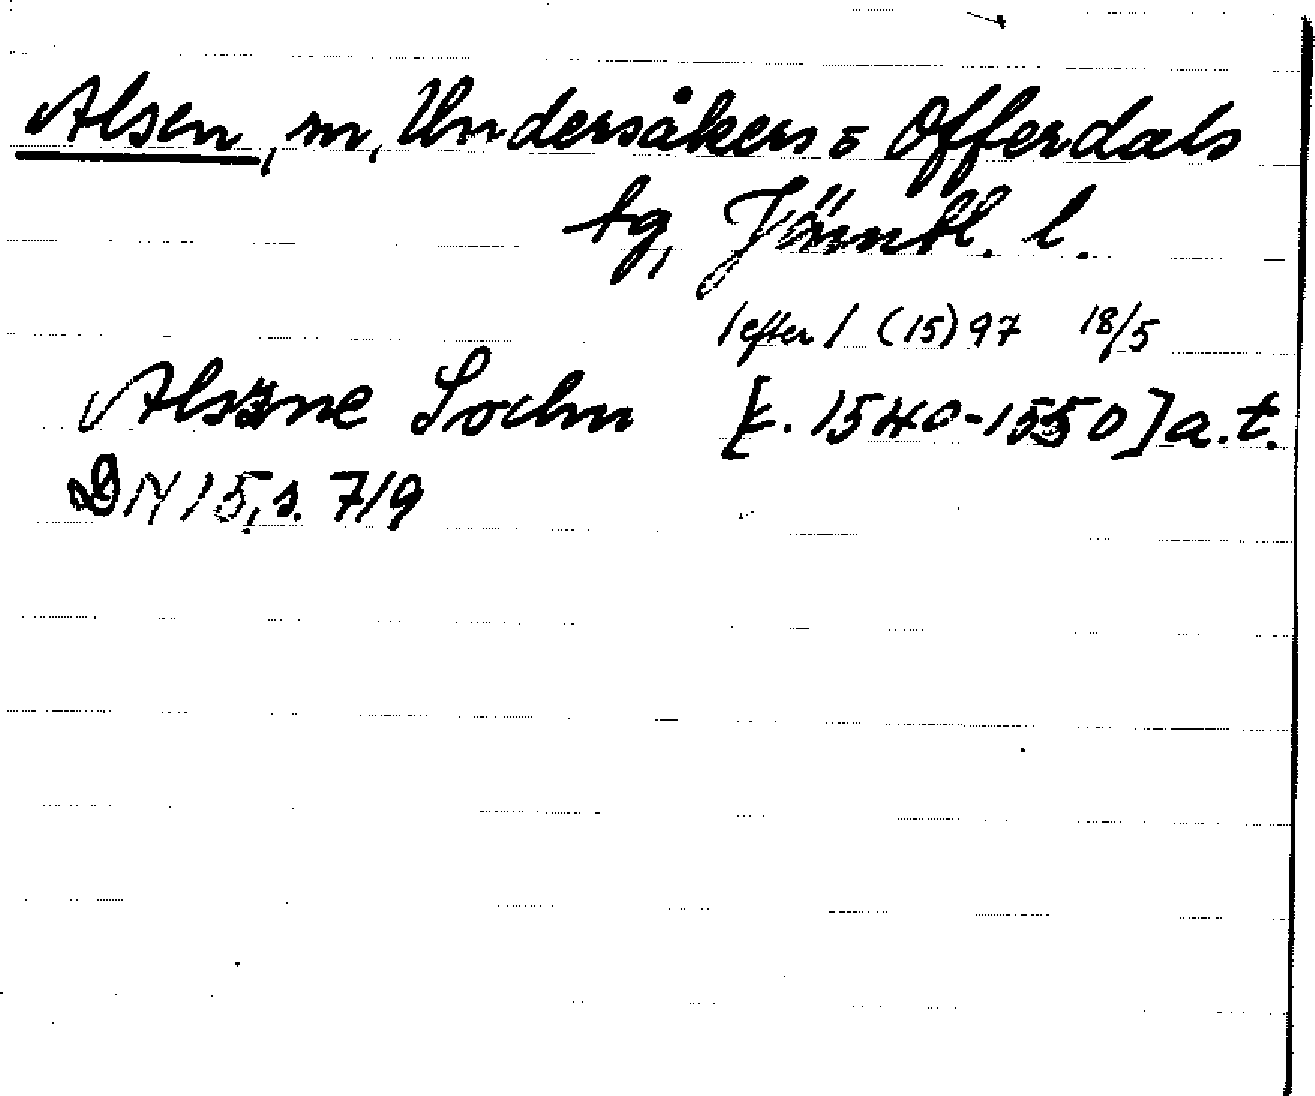 Alsen, sn, Undersåkers o Offerdals
tg, Jämtl. l.
/efter/ (15)97 18/5
Alszne Sochn [t. 1540-1550] a.t.
DN 15, s. 719